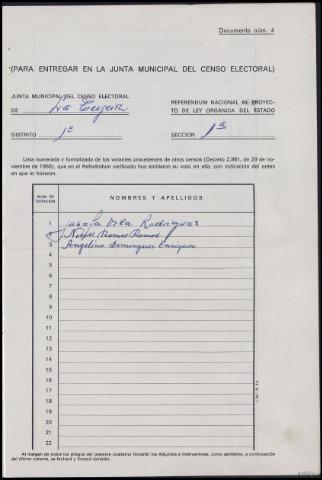 Documento núm. 4
(PARA ENTREGAR EN LA JUNTA MUNICIPAL DEL CENSO ELECTORAL)
JUNTA MUNICIPAL DEL CENSO ELECTORAL
DE La
REFERENDUM NACIONAL DE PROYECTO DE LEY ORGANICA DEL ESTADO
DISTRITO 1º
SECCION 1ª
Lista numerada y formalizada de los votantes procedentes de otros censos (Decreto 2.981, de 29 de no-
viembre de 1966), que en el Referéndum verificado hoy emitieron su voto en ella, con indicación del orden
en que lo hicieron.
NUM. DE
VOTACION
NOMBRES Y APELLIDOS
1 Josefa Vila Rodriguez
2 Ramos Ramos
3 Angelina Dominguez Enriquez
4
5
6
7
8
9
10
11
12
13
14
15
16
17
18
19
20
21
22
Al margen de todos los pliegos del presente cuaderno firmarán los Adjuntos e Interventores, como asimismo, a continuación
del último votante, se fechará y firmará también.